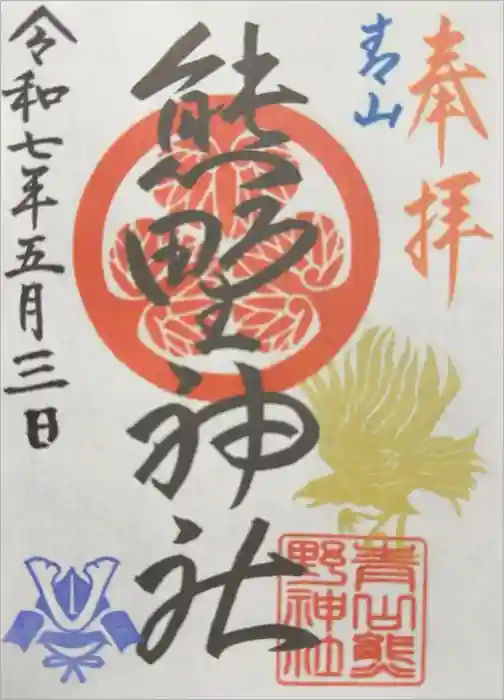 奉拝
青山
熊野神社
令和七年五月三日
青山熊
野神社